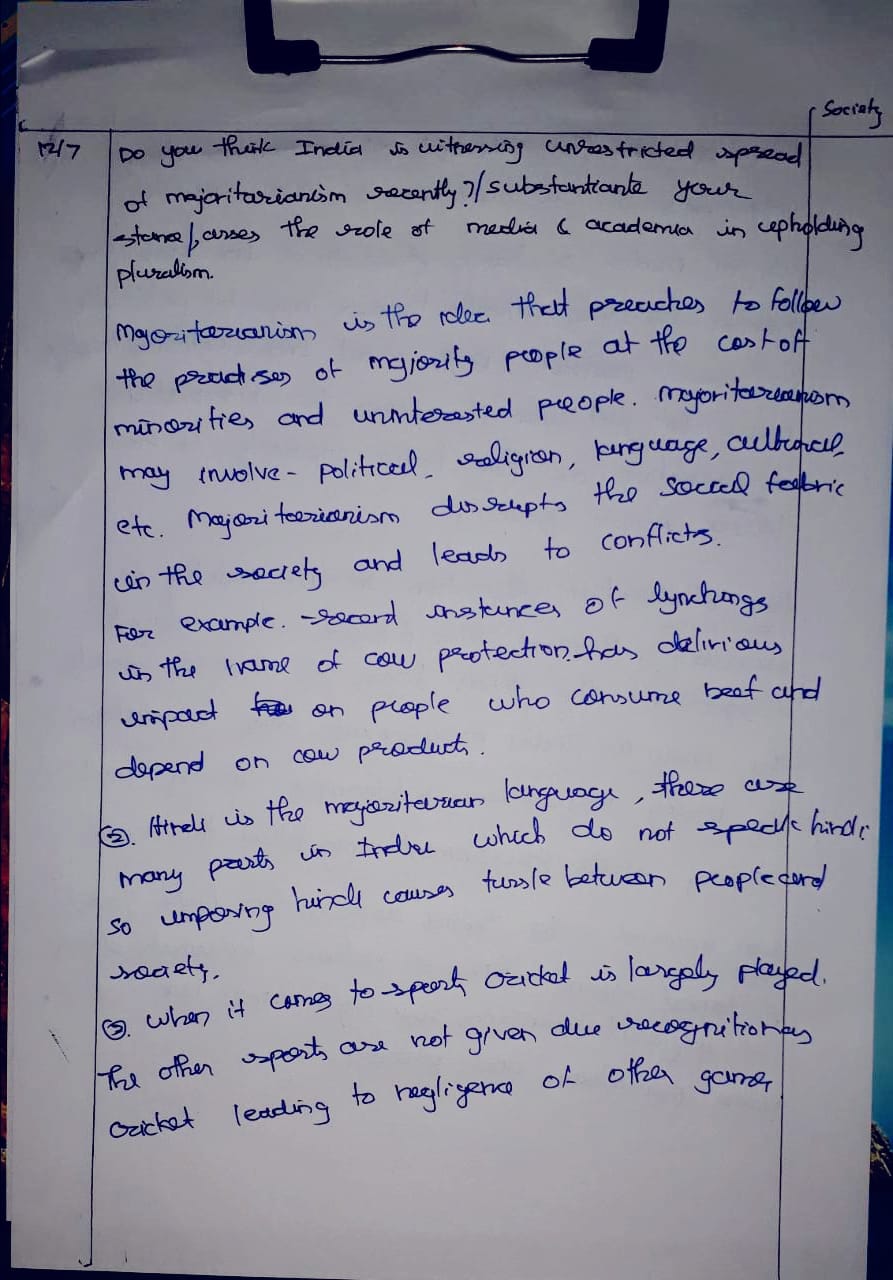 Society
12/7 Do you think India is witnessing unrestricted spread
of majoritarianism recently?/substantiante your
stance/, asses the role of media & academia in upholding
pluralism.
Majoritarianism is the idea that preaches to follow
the practises of majority people at the cost off
minorities and uninterested people. Majoritarianism
may involve - political, religion, language, cultural,
etc. Majoritarianism disrupts the social fabric
in the society and leads to conflicts.
For example. - recard instances of lynchings
in the name of cow protection has delirious
impact on people who consume beef and
depend on cow products.
②. Hindi is the majoritarian language, there are
many parts in India which do not speak hindi
so imposing hindi causes tussle between people and
society.
③. When it comes to sports cricket is largely played.
The other sports are not given due recognition as
cricket leading to negligence of other games